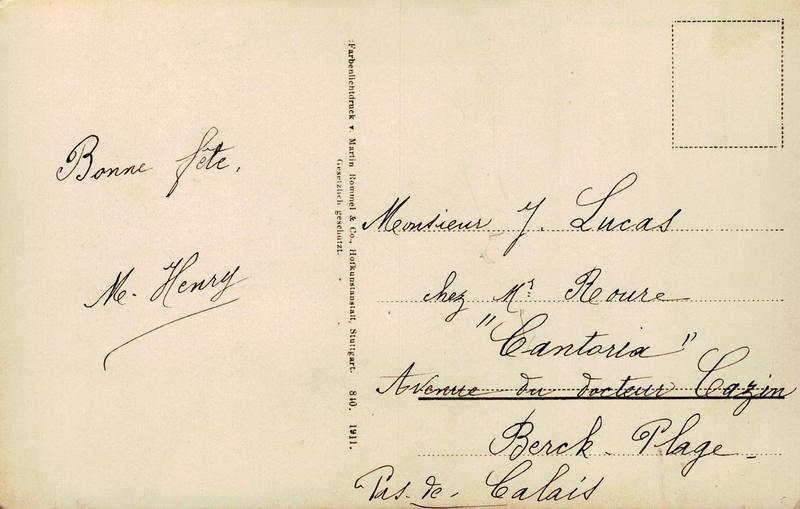 Bonne fête,
M. Henry
Farbenlichtdruck v. Martin Rommel & Co., Hofkunstanstalt, Stuttgart. 840. 1911.
Gesetzlich geschützt.
Monsieur J. Lucas
chez Mr Roure
"Cantoria"
Avenue du docteur Cazin
Berck-Plage-
Pas-de-Calais